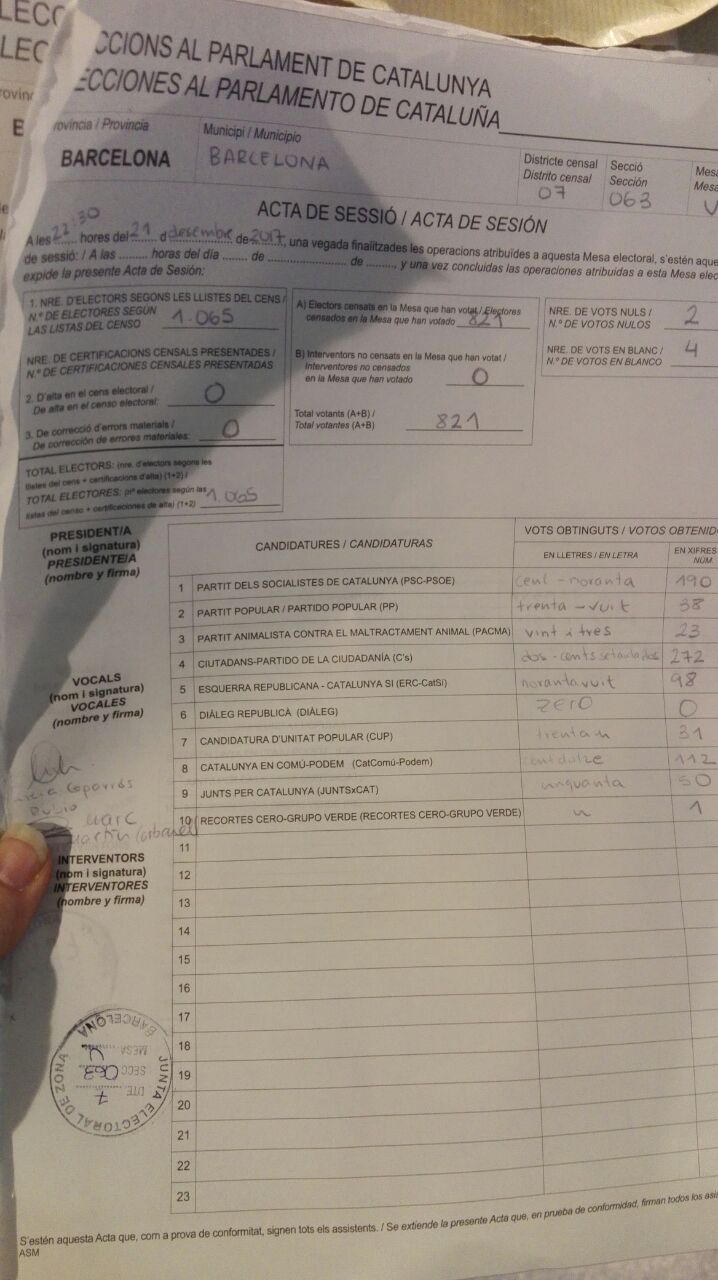 LECC
LEC
CCIONS AL PARLAMENT DE CATALUNYA
ECCIONES AL PARLAMENTO DE CATALUÑA
rovíncia / Provincia
BARCELONA
Municipi / Municipio
BARCELONA
Districte censal
Distrito censal
07
Secció
Sección
063
Mesa
Mesa
U
ACTA DE SESSIÓ / ACTA DE SESIÓN
A les 22:30 hores del 21 d desembre de 2017, una vegada finalitzades les operacions atribuïdes a aquesta Mesa electoral, s'estén aque
de sessió: / A las ......... horas del día ....... de ..................... de ........, y una vez concluidas las operaciones atribuidas a esta Mesa elec
expide la presente Acta de Sesión:
1. NRE. D'ELECTORS SEGONS LES LLISTES DEL CENS /
N.º DE ELECTORES SEGÚN
LAS LISTAS DEL CENSO 1.065
NRE. DE CERTIFICACIONS CENSALS PRESENTADES /
N.º DE CERTIFICACIONES CENSALES PRESENTADAS
2. D'alta en el cens electoral /
De alta en el censo electoral: 0
3. De correcció d'errors materials /
De corrección de errores materiales: 0
TOTAL ELECTORS: (nre. d'electors segons les
llistes del cens + certificacions d'alta) (1+2) /
TOTAL ELECTORES: (nº electores según las
listas del censo + certificaciones de alta) (1+2) 1.065
A) Electors censats en la Mesa que han votat / Electores
censados en la Mesa que han votado 821
B) Interventors no censats en la Mesa que han votat /
Interventores no censados
en la Mesa que han votado 0
Total votants (A+B) /
Total votantes (A+B) 821
NRE. DE VOTS NULS /
N.º DE VOTOS NULOS 2
NRE. DE VOTS EN BLANC /
N.º DE VOTOS EN BLANCO 4
PRESIDENT/A
(nom i signatura)
PRESIDENTE/A
(nombre y firma)
VOCALS
(nom i signatura)
VOCALES
(nombre y firma)
Caparrós
Rubio
Marc
Martín
INTERVENTORS
(nom i signatura)
INTERVENTORES
(nombre y firma)
CANDIDATURES / CANDIDATURAS
VOTS OBTINGUTS / VOTOS OBTENIDO
EN LLETRES / EN LETRA
EN XIFRES
NÚM
1 PARTIT DELS SOCIALISTES DE CATALUNYA (PSC-PSOE) cent - noranta 190
2 PARTIT POPULAR / PARTIDO POPULAR (PP) trenta - vuit 38
3 PARTIT ANIMALISTA CONTRA EL MALTRACTAMENT ANIMAL (PACMA) vint i tres 23
4 CIUTADANS-PARTIDO DE LA CIUDADANÍA (C's) dos-cents setanta dos 272
5 ESQUERRA REPUBLICANA - CATALUNYA SI (ERC-CatSí) noranta vuit 98
6 DIÀLEG REPUBLICÀ (DIÀLEG) ZERO 0
7 CANDIDATURA D'UNITAT POPULAR (CUP) trenta u 31
8 CATALUNYA EN COMÚ-PODEM (CatComú-Podem) cent dotze 112
9 JUNTS PER CATALUNYA (JUNTSxCAT) cinquanta 50
10 RECORTES CERO-GRUPO VERDE (RECORTES CERO-GRUPO VERDE) u 1
11
12
13
14
15
16
17
18
19
20
21
22
23
JUNTA ELECTORAL DE ZONA
BARCELONA
DTE. 7
SECC. 063
MESA U
S'estén aquesta Acta que, com a prova de conformitat, signen tots els assistents. / Se extiende la presente Acta que, en prueba de conformidad, firman todos los asi
ASM